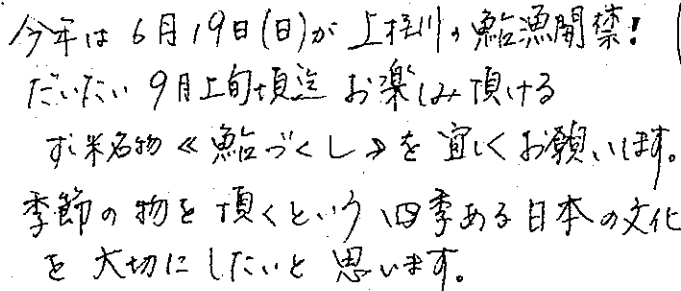 今年は6月19日(日)が上桂川の鮎漁開禁!
だいたい9月上旬頃迄お楽しみ頂ける
すし米名物≪鮎づくし≫を宜しくお願いします。
季節の物を頂くという四季ある日本の文化
を大切にしたいと思います。